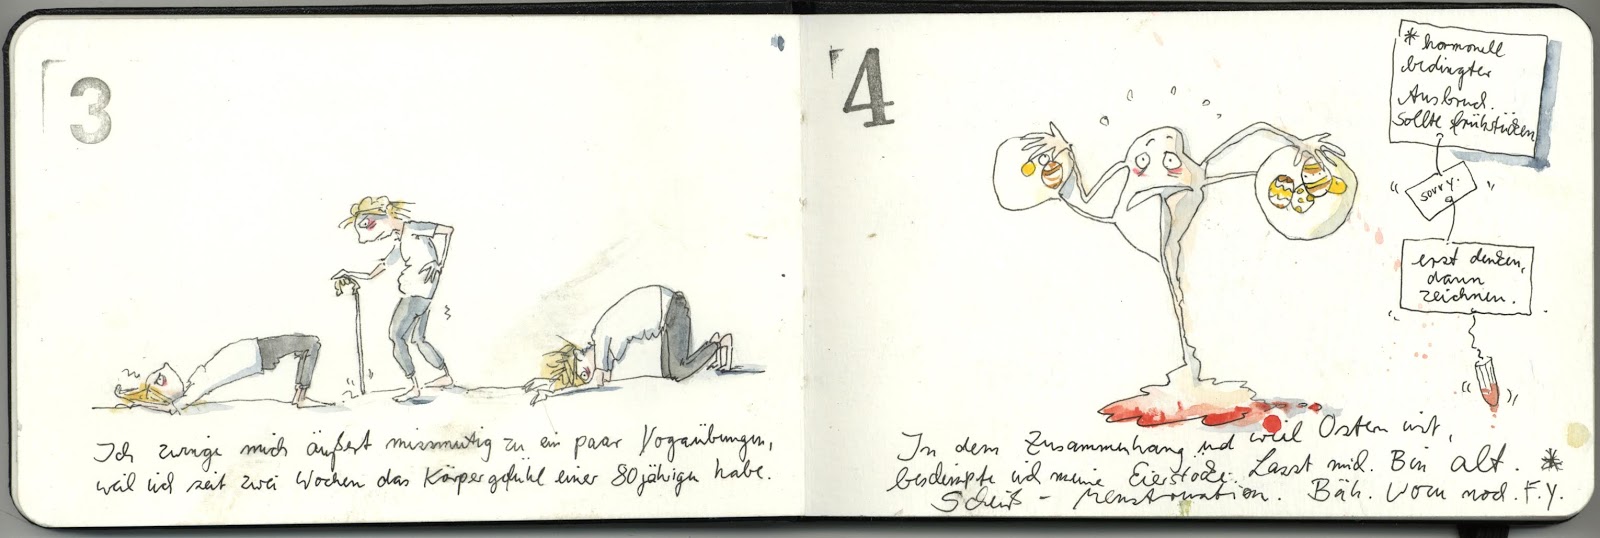 3
Ich zwinge mich äußert missmutig zu ein paar Yogaübungen,
weil ich seit zwei Wochen das Körpergefühl einer 80 jährigen habe.
4
* hormonell
bedingter
Ausbruch.
Sollte frühstücken
sorry.
erst denken,
dann
zeichnen.
In dem Zusammenhang und weil Ostern ist,
ich meine Eierstöcke. Lasst mich. Bin alt. *
Scheiß - Menstruation. Bäh. F.Y.